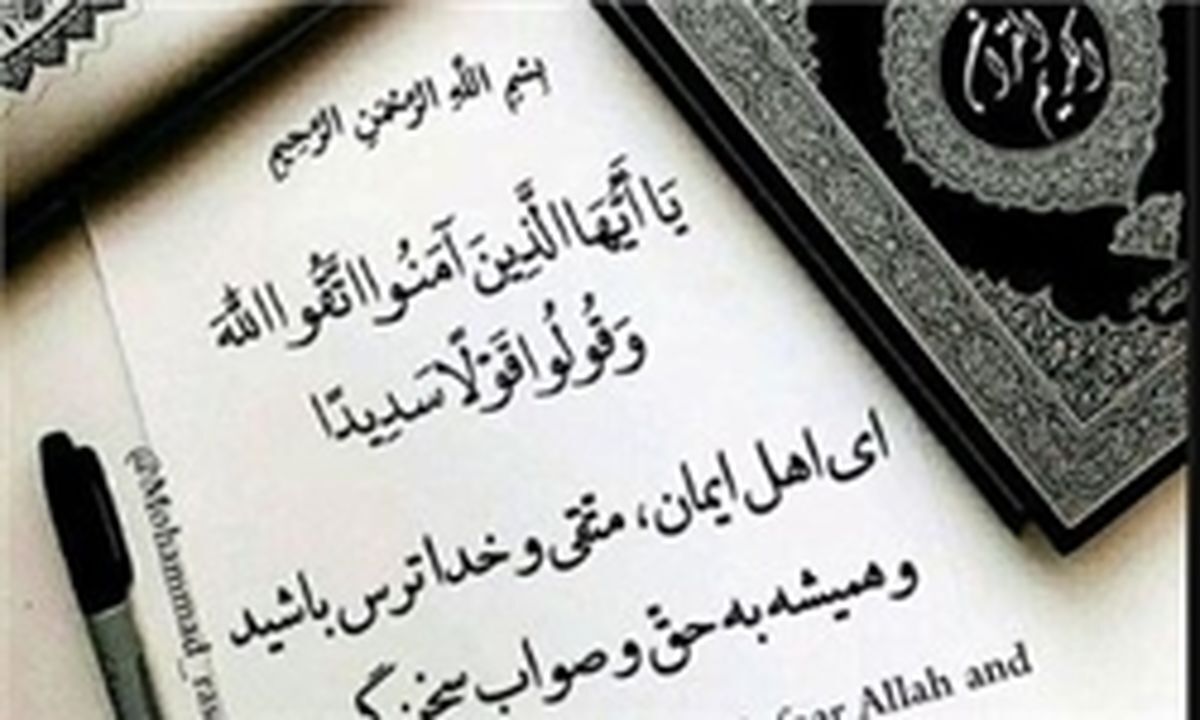 القرآن الكريم
بِسْمِ اللَّهِ الرَّحْمَنِ الرَّحِيمِ
يَا أَيُّهَا الَّذِينَ آمَنُوا اتَّقُوا اللَّهَ
وَقُولُوا قَوْلًا سَدِيدًا
ای اهل ایمان، متقی و خدا ترس باشید
و همیشه به حقّ و صواب سخن
fear Allah and
@Mohammad_ras